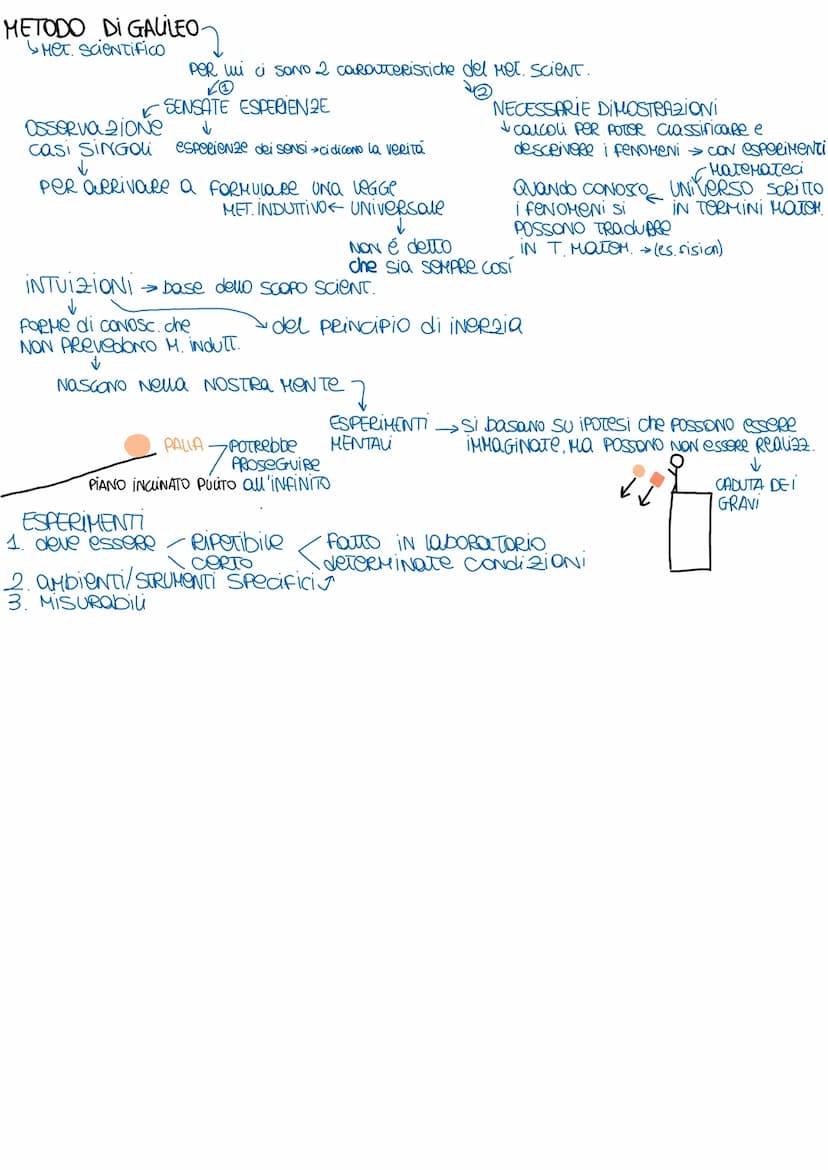 METODO Di GALILEO
↳ MET. SCIENTIFICO
PER lui ci sono 2 caratteristiche del MET. SCIENT.
① SENSATE ESPERIENZE
OSSERVAZIONE
CASI SINGOLI
ESPERIENZE dei SENSI → ci dicono la VERITÀ
PER ARRIVARE A FORMULARE UNA LEGGE
MET. INDUTTIVO ← UNIVERSALE
NON é detto
che sia SEMPRE così
②
NECESSARIE DIMOSTRAZIONI
↓ calcoli PER POTER CLASSIFICARE e
descrivere i FENOMENI → CON ESPERIMENTI
MATEMATECI
UNIVERSO SCRITTO
IN TERMINI MATEM.
QUANDO CONOSCO
i FENOMENI SI
POSSONO TRADURRE
IN T. MATEM. → (es. fisica)
INTUIZIONI → base dello SCOPO SCIENT.
del PRINCIPIO di INERZIA
FORME di CONOSC. che
NON PREVEDONO M. INDUTT.
NASCONO Nella NOSTRA MENTE
ESPERIMENTI
MENTALI
→ SI BASANO SU IPOTESI CHE POSSONO ESSERE
IMMAGINATE, MA POSSONO NON ESSERE REALIZZ.
CADUTA DEI
GRAVI
PALLA
POTREBBE
PROSEGUIRE
all'INFINITO
PIANO INCLINATO PULITO
ESPERIMENTI
1. deve essere RIPETIBILE FATTO IN LABORATORIO
CERTO DETERMINATE CONDIZIONI
2. AMBIENTI/STRUMENTI SPECIFICI
3. MISURABILI